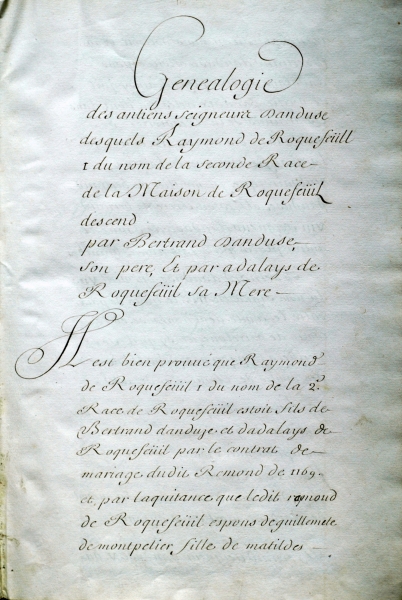 Genealogie
des antiens seigneurs Danduse
desquels Raymond de Roquefeüil
1 du nom de la seconde Race
de la Maison de Roquefeüil
descend
par Bertrand Danduse,
son pere, Et par adalays de
Roquefeüil sa Mere
Il est bien prouué que Raymond
de Roquefeüil 1 du nom de la 2e
Race de Roquefeüil estoit fils de
Bertrand danduze et dadalays de
Roquefeüil par le contrat de
mariage dudit Remond de 1169.
et par laquitance que ledit remond
de Roquefeüil espous de guillemete
de montpelier fille de matildes